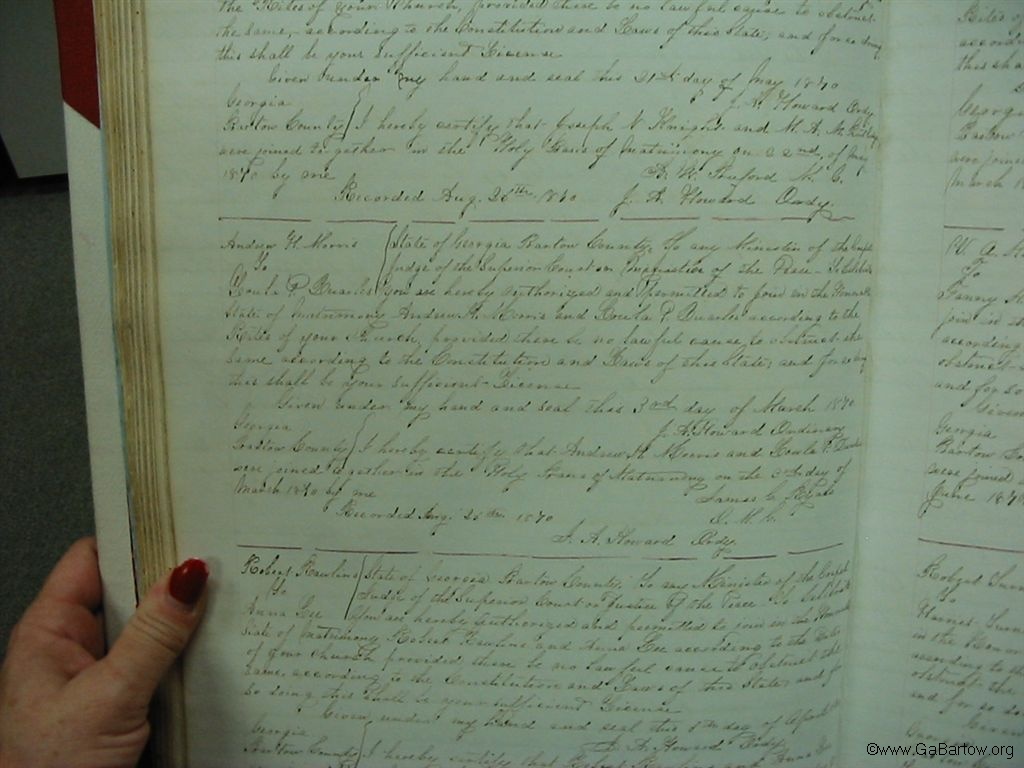 the Rites of your Church, provided there be no lawful cause to obstruct
the same, according to the Constitution and Laws of this State, and for so doing
this shall be your sufficient License
Given under my hand and seal this 21st day of May 1870
Georgia J. A. Howard Ordy
Bartow County I hereby certify that Joseph N Knight and M. A.
were joined together in the Holy Bans of Matrimony on 22nd of May
1870 by me
Recorded Aug. 26th 1870 J. A. Howard Ordy.
Andrew H. Morris State of Georgia Bartow County, To any Minister of the Gospel
To Judge of the Superior Court or Justice of the Peace
you are hereby authorized and permitted to join in the Honorable
State of Matrimony Andrew H. Morris and according to the
Rites of your Church, provided there be no lawful cause to obstruct the
same according to the Constitution and Laws of this State, and for so doing
this shall be your sufficient License
Given under my hand and seal this 3rd day of March 1870
Georgia J. A. Howard Ordinary
Bartow County I hereby certify that Andrew H. Morris and
were joined together in the Holy Bans of Matrimony on the day of
March 1870 by me James
Recorded Aug. 26th 1870
J. A. Howard Ordy.
Robert Rawlins State of Georgia Bartow County; To any Minister of the Gospel
To Judge of the Superior Court or Justice of the Peace
Anna Gee You are hereby authorized and permitted to join in the Honorable
State of matrimony Robert Rawlins and Anna Gee according to the Rites
of your church provided there be no lawful cause to obstruct the
same, according to the Constitution and Laws of this State, and for
so doing this shall be your sufficient License
Given under my hand and seal this day of April
Georgia J. A. Howard Ordy
Bartow County I hereby certify that Robert Rawlins and Anna
Rites of
accord
this sha
Georgia
Bartow
were joined
March 1
W. A.
To
Fanny
join in
according
obstruct
and for so
Given
Georgia
Bartow
were joined
June 187
Robert
To
Harriet
in the
according to the
obstruct the
and for so
Given
©www.GaBartow.org